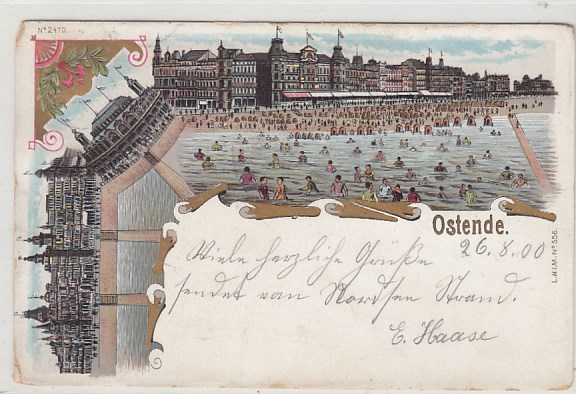 No 2470.
Ostende.
26.8.00
Viele herzliche Grüße
sendet vom Nordsee Strand.
E. Haase
L.H.i.M. No 556.